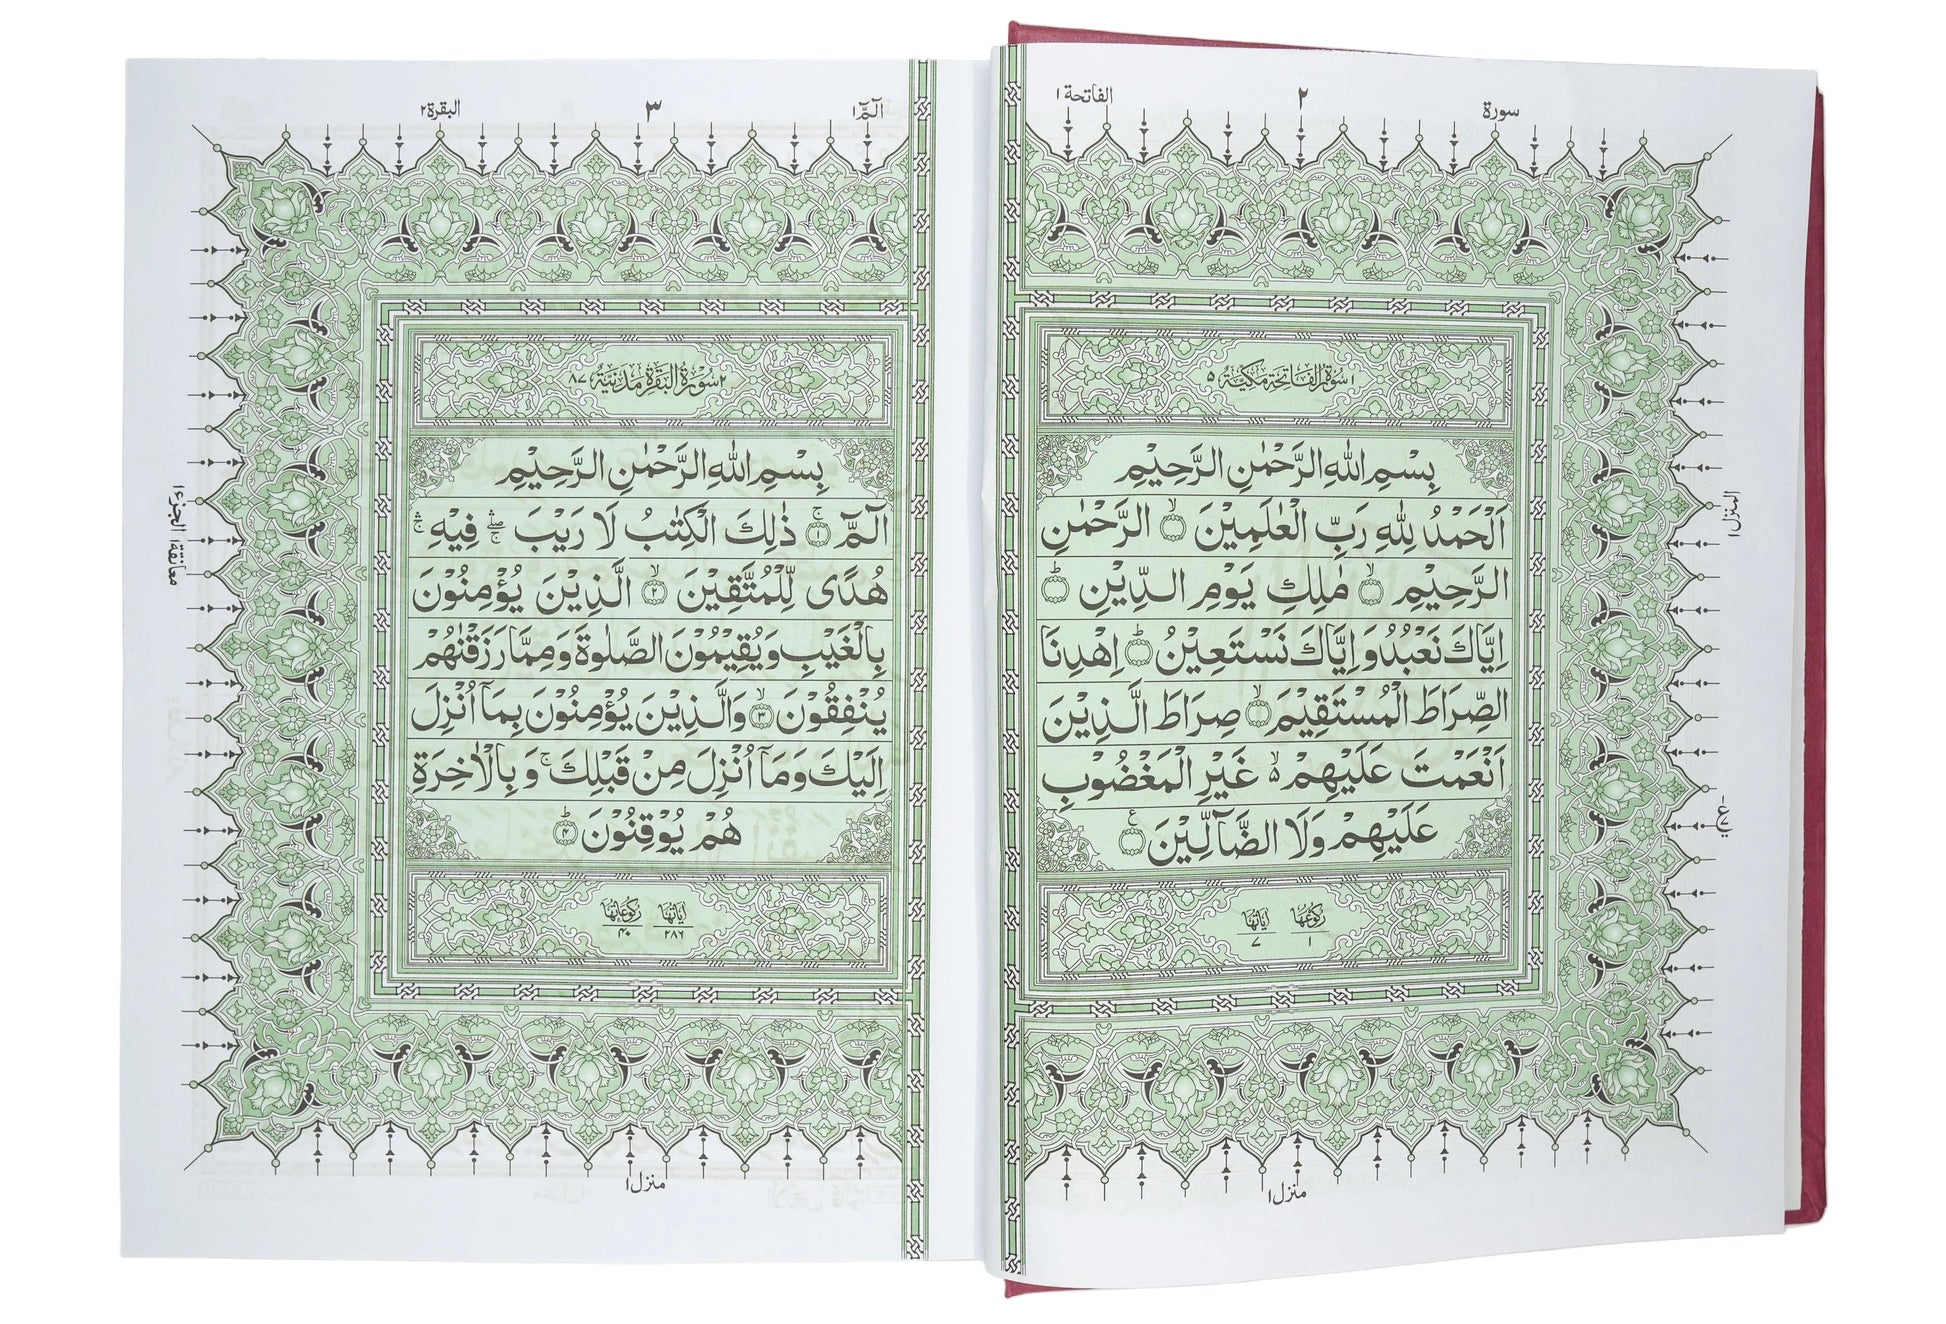 سورة
٢
الفاتحة ١
١ سُوْرَةُ الْفَاتِحَةِ مَكِّيَّةٌ ٥
بِسْمِ اللّٰهِ الرَّحْمٰنِ الرَّحِيْمِ
اَلْحَمْدُ لِلّٰهِ رَبِّ الْعٰلَمِيْنَ ۙ الرَّحْمٰنِ
الرَّحِيْمِ ۙ مٰلِكِ يَوْمِ الدِّيْنِ ؕ
اِيَّاكَ نَعْبُدُ وَاِيَّاكَ نَسْتَعِيْنُ ؕ اِهْدِنَا
الصِّرَاطَ الْمُسْتَقِيْمَ ۙ صِرَاطَ الَّذِيْنَ
اَنْعَمْتَ عَلَيْهِمْ ۙ۬ غَيْرِ الْمَغْضُوْبِ
عَلَيْهِمْ وَلَا الضَّآلِّيْنَ
رُكُوْعُهَا ١ اٰيَاتُهَا ٧
المنزل ١
منزل ١
الٓمّٓ ١
٣
البقرة ٢
٢ سُوْرَةُ الْبَقَرَةِ مَدَنِيَّةٌ ٨٧
بِسْمِ اللّٰهِ الرَّحْمٰنِ الرَّحِيْمِ
الٓمّٓ ۚ ﴿١﴾ ذٰلِكَ الْكِتٰبُ لَا رَيْبَ ۖۛۚ فِيْهِ ۛۚ
هُدًى لِّلْمُتَّقِيْنَ ۙ ﴿٢﴾ الَّذِيْنَ يُؤْمِنُوْنَ
بِالْغَيْبِ وَيُقِيْمُوْنَ الصَّلٰوةَ وَمِمَّا رَزَقْنٰهُمْ
يُنْفِقُوْنَ ۙ ﴿٣﴾ وَالَّذِيْنَ يُؤْمِنُوْنَ بِمَآ اُنْزِلَ
اِلَيْكَ وَمَآ اُنْزِلَ مِنْ قَبْلِكَ ۚ وَبِالْاٰخِرَةِ
هُمْ يُوْقِنُوْنَ ؕ ﴿٤﴾
اٰيَاتُهَا ٢٨٦ رُكُوْعَاتُهَا ٤٠
معانقة ١ الجزء ١
منزل ١